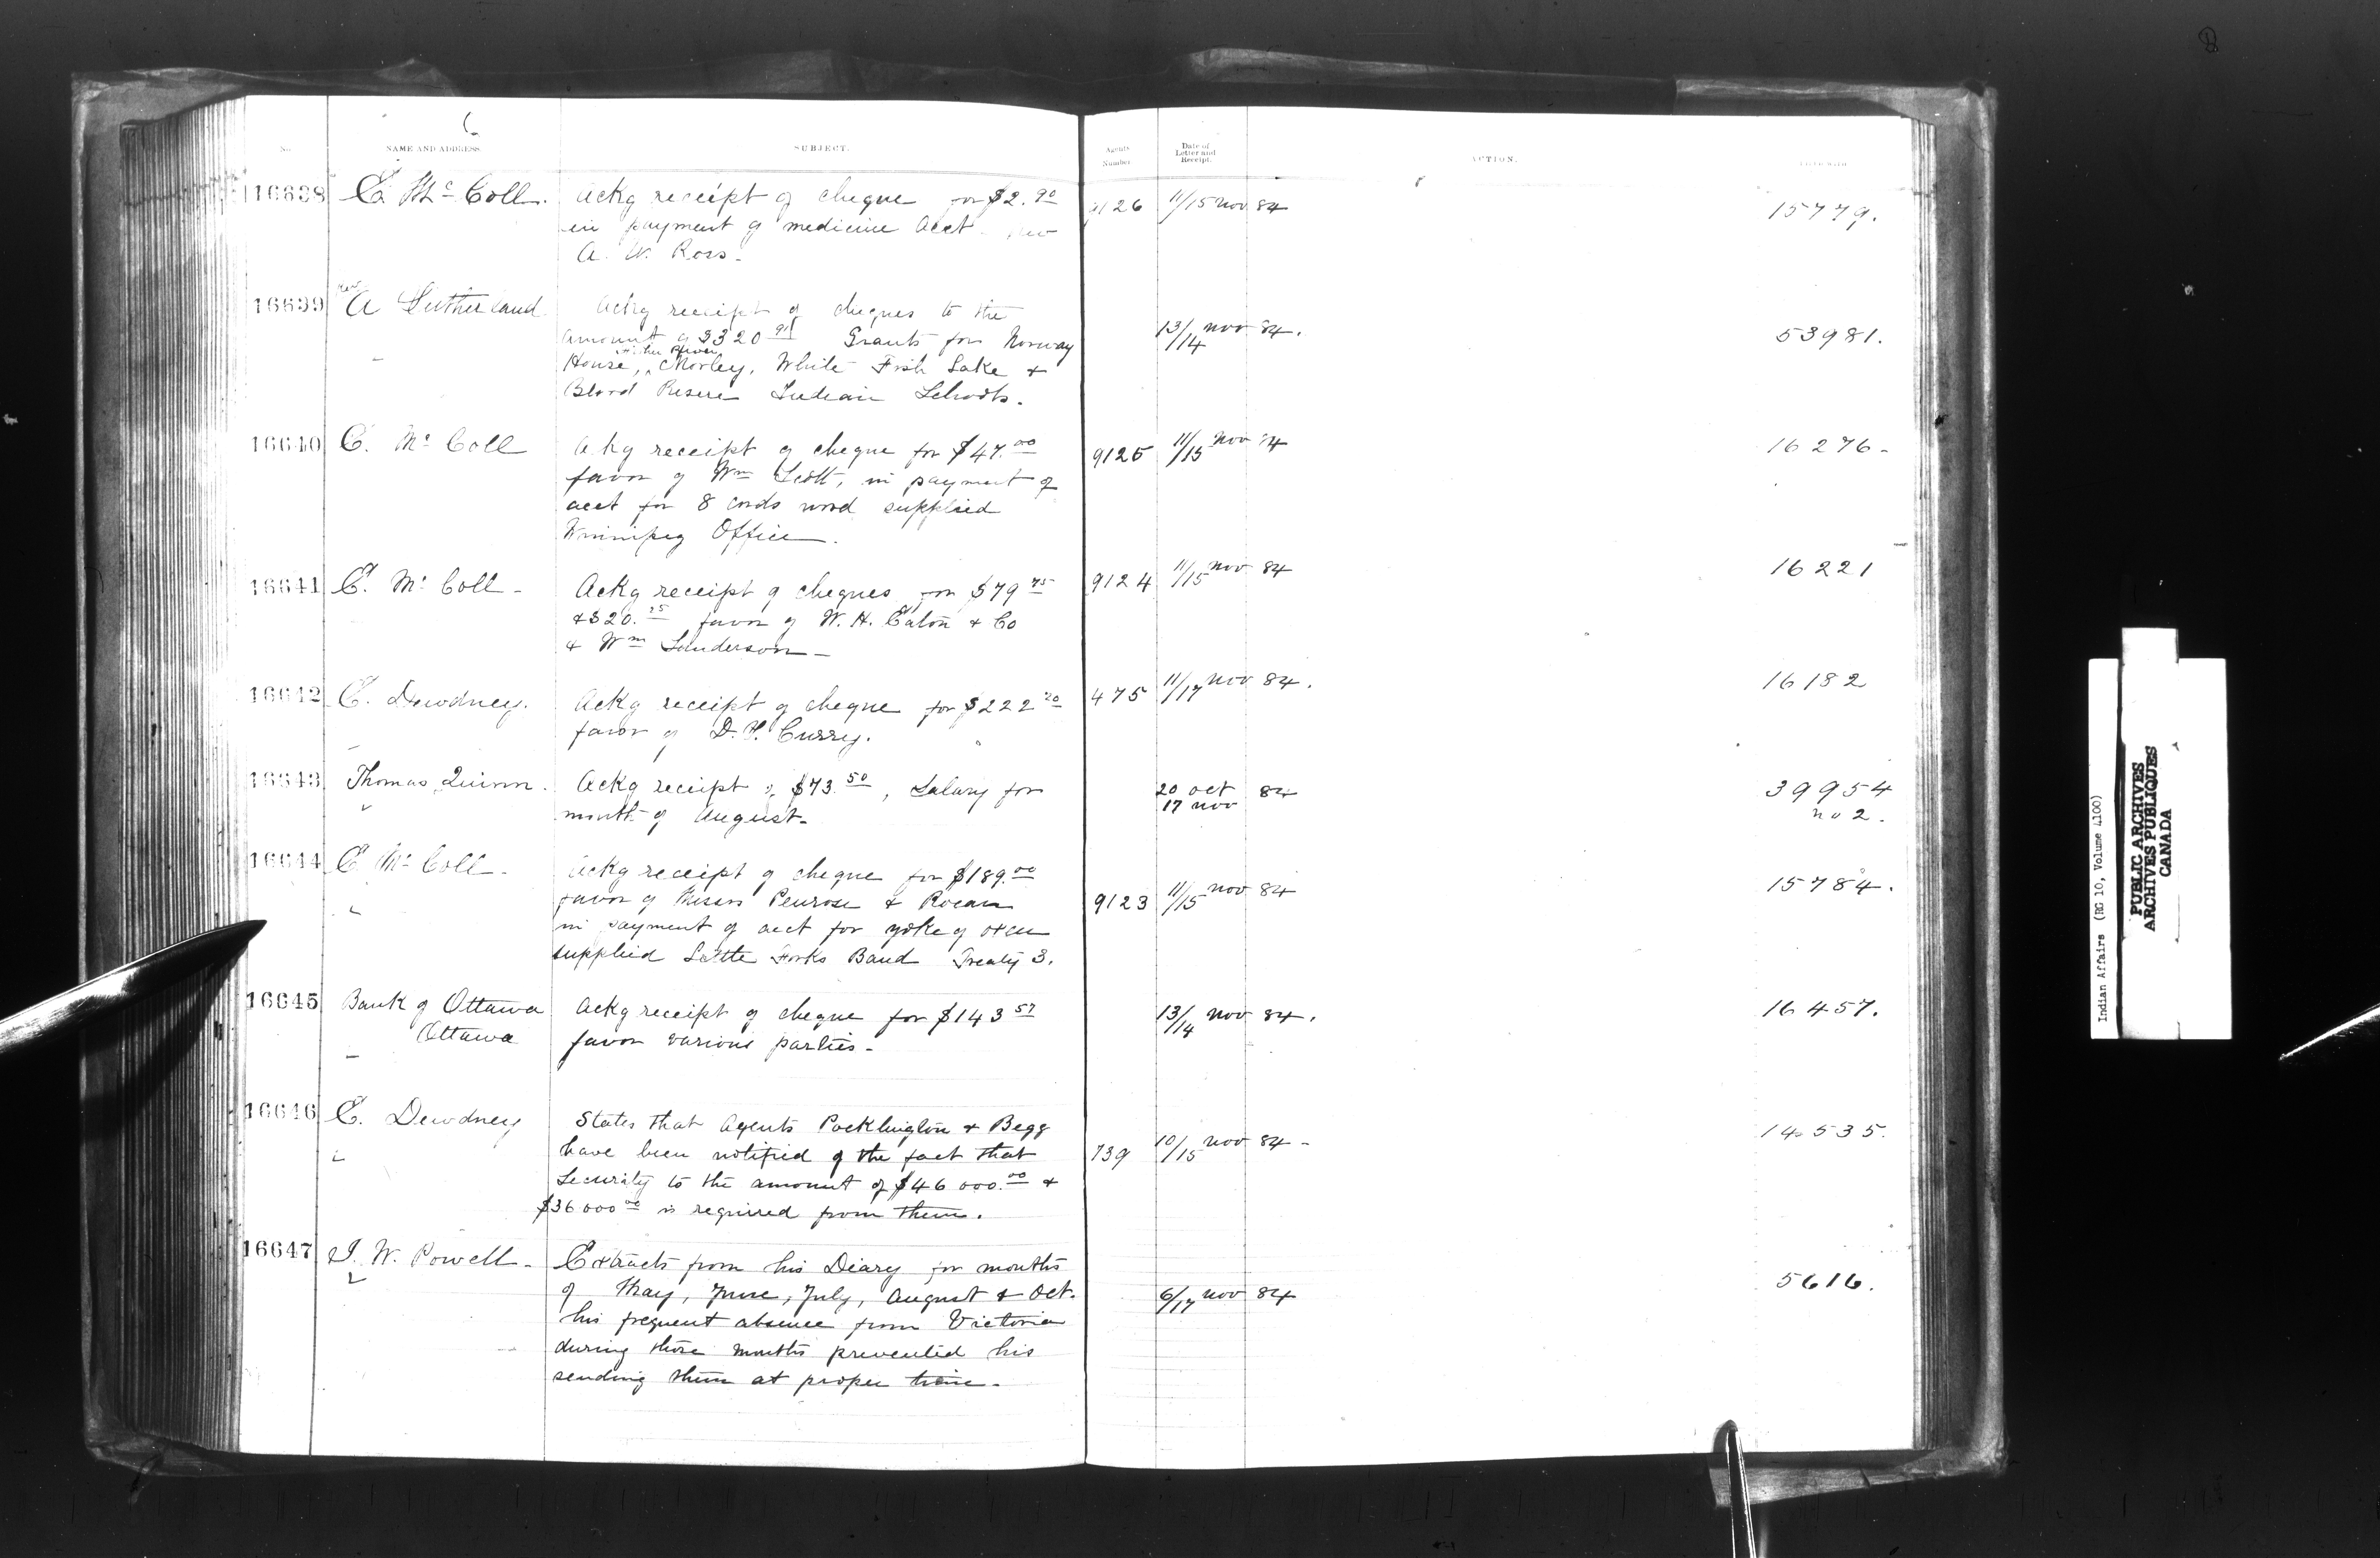 No. NAME AND ADDRESS. SUBJECT. Agents Number Date of Letter and Receipt. ACTION.
16638 E. McColl. Ackg receipt of cheque for $2.90 9126 11/15 Nov 84 15779.
in payment of medicine acct
A. W. Ross.
16639 Rev A Sutherland Ackg receipt of cheques to the
amount of $320 91 Grants for Norway 13/14 Nov 84. 53981.
House, Fisher River Morley, White Fish Lake +
Blood Reserve Indian Schools.
16640 E. McColl Ackg receipt of cheque for $47.00 9125 11/15 Nov 84 16276
favor of Wm Scott, in payment of
acct for 8 cords wood supplied
Winnipeg Office.
16641 E. McColl Ackg receipt of cheques for $79 75 9124 11/15 Nov 84 16221
+ $20.25 favor of W. H. Eaton + Co
+ Wm Sanderson
16642 E. Dewdney. Ackg receipt of cheque for $222 20 475 11/17 Nov 84. 16182
favor of D. H. Curry.
16643 Thomas Quinn. Ackg receipt of $73.50, Salary for 20 Oct 84 39954
month of August. 17 Nov no 2.
16644 E McColl Ackg receipt of cheque for $189.00 11/15 Nov 84 15784.
favor of Messrs Penrose + Rocan 9123
in payment of acct for yoke of oxen
supplied Little Forks Band Treaty 3.
16645 Bank of Ottawa Ackg receipt of cheque for $143 57 13/14 Nov 84. 16457.
Ottawa favor various parties.
16646 E. Dewdney States that Agents Pocklington + Begg 14535.
have been notified of the fact that 739 10/15 Nov 84
Security to the amount of $46000.00 +
$36000 00 is required from them.
16647 I. W. Powell Extracts from his Diary for months
of May, June, July, August + Oct. 6/17 Nov 84 5616.
his frequent absence from Victoria
during those months prevented his
sending them at proper time.
Indian Affairs (RG 10, Volume 4100)
PUBLIC ARCHIVES
ARCHIVES PUBLIQUES
CANADA